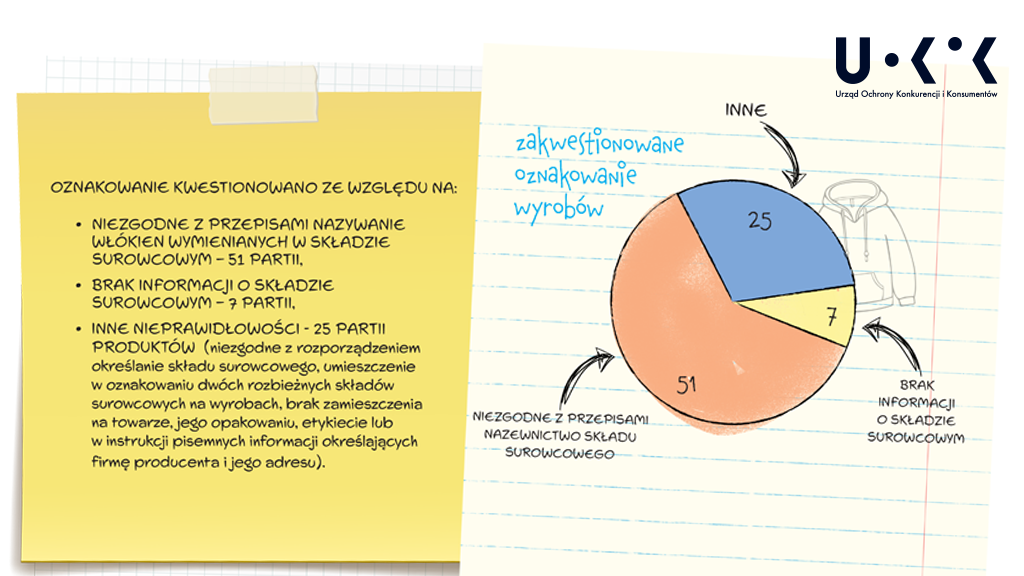 U·K·K
Urząd Ochrony Konkurencji i Konsumentów
OZNAKOWANIE KWESTIONOWANO ZE WZGLĘDU NA:
• NIEZGODNE Z PRZEPISAMI NAZYWANIE
WŁÓKIEN WYMIENIANYCH W SKŁADZIE
SUROWCOWYM – 51 PARTII,
• BRAK INFORMACJI O SKŁADZIE
SUROWCOWYM – 7 PARTII,
• INNE NIEPRAWIDŁOWOŚCI - 25 PARTII
PRODUKTÓW (niezgodne z rozporządzeniem
określanie składu surowcowego, umieszczenie
w oznakowaniu dwóch rozbieżnych składów
surowcowych na wyrobach, brak zamieszczenia
na towarze, jego opakowaniu, etykiecie lub
w instrukcji pisemnych informacji określających
firmę producenta i jego adresu).
zakwestionowane
oznakowanie
wyrobów
INNE
25
7
51
NIEZGODNE Z PRZEPISAMI
NAZEWNICTWO SKŁADU
SUROWCOWEGO
BRAK
INFORMACJI
O SKŁADZIE
SUROWCOWYM